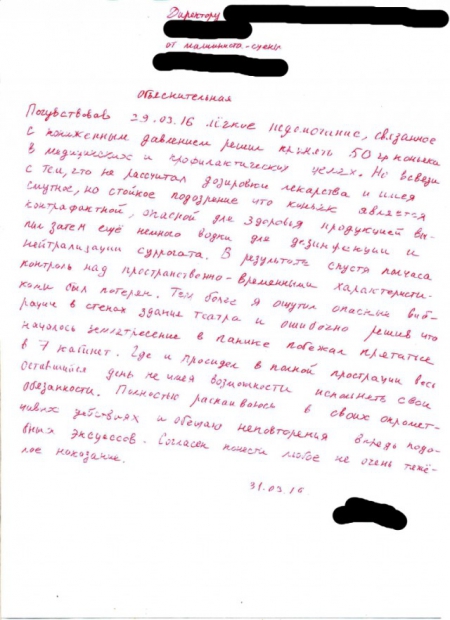 Директору
от машиниста-сцены
Объяснительная
Почувствовав 29.03.16 лёгкое недомогание, связанное
с пониженным давлением решил принять 50 гр коньяка
в медицинских и профилактических целях. Но в связи
с тем, что не рассчитал дозировки лекарства и имея
смутное, но стойкое подозрение что коньяк является
контрафактной, опасной для здоровья продукцией вы-
пил затем ещё немного водки для дезинфекции и
нейтрализации суррогата. В результате спустя полчаса
контроль над пространственно-временными характеристи-
ками был потерян. Тем более я ощутил опасные виб-
рации в стенах здания театра и ошибочно решив что
началось землетресение в панике побежал прятаться
в 7 кабинет. Где и просидел в полной прострации весь
оставшийся день не имея возможности исполнять свои
обязанности. Полностью раскаиваюсь в своих опромет-
чивых действиях и обещаю неповторения впредь подо-
бных эксцессов. Согласен понести любое не очень тяжё-
лое наказание.
31.03.16